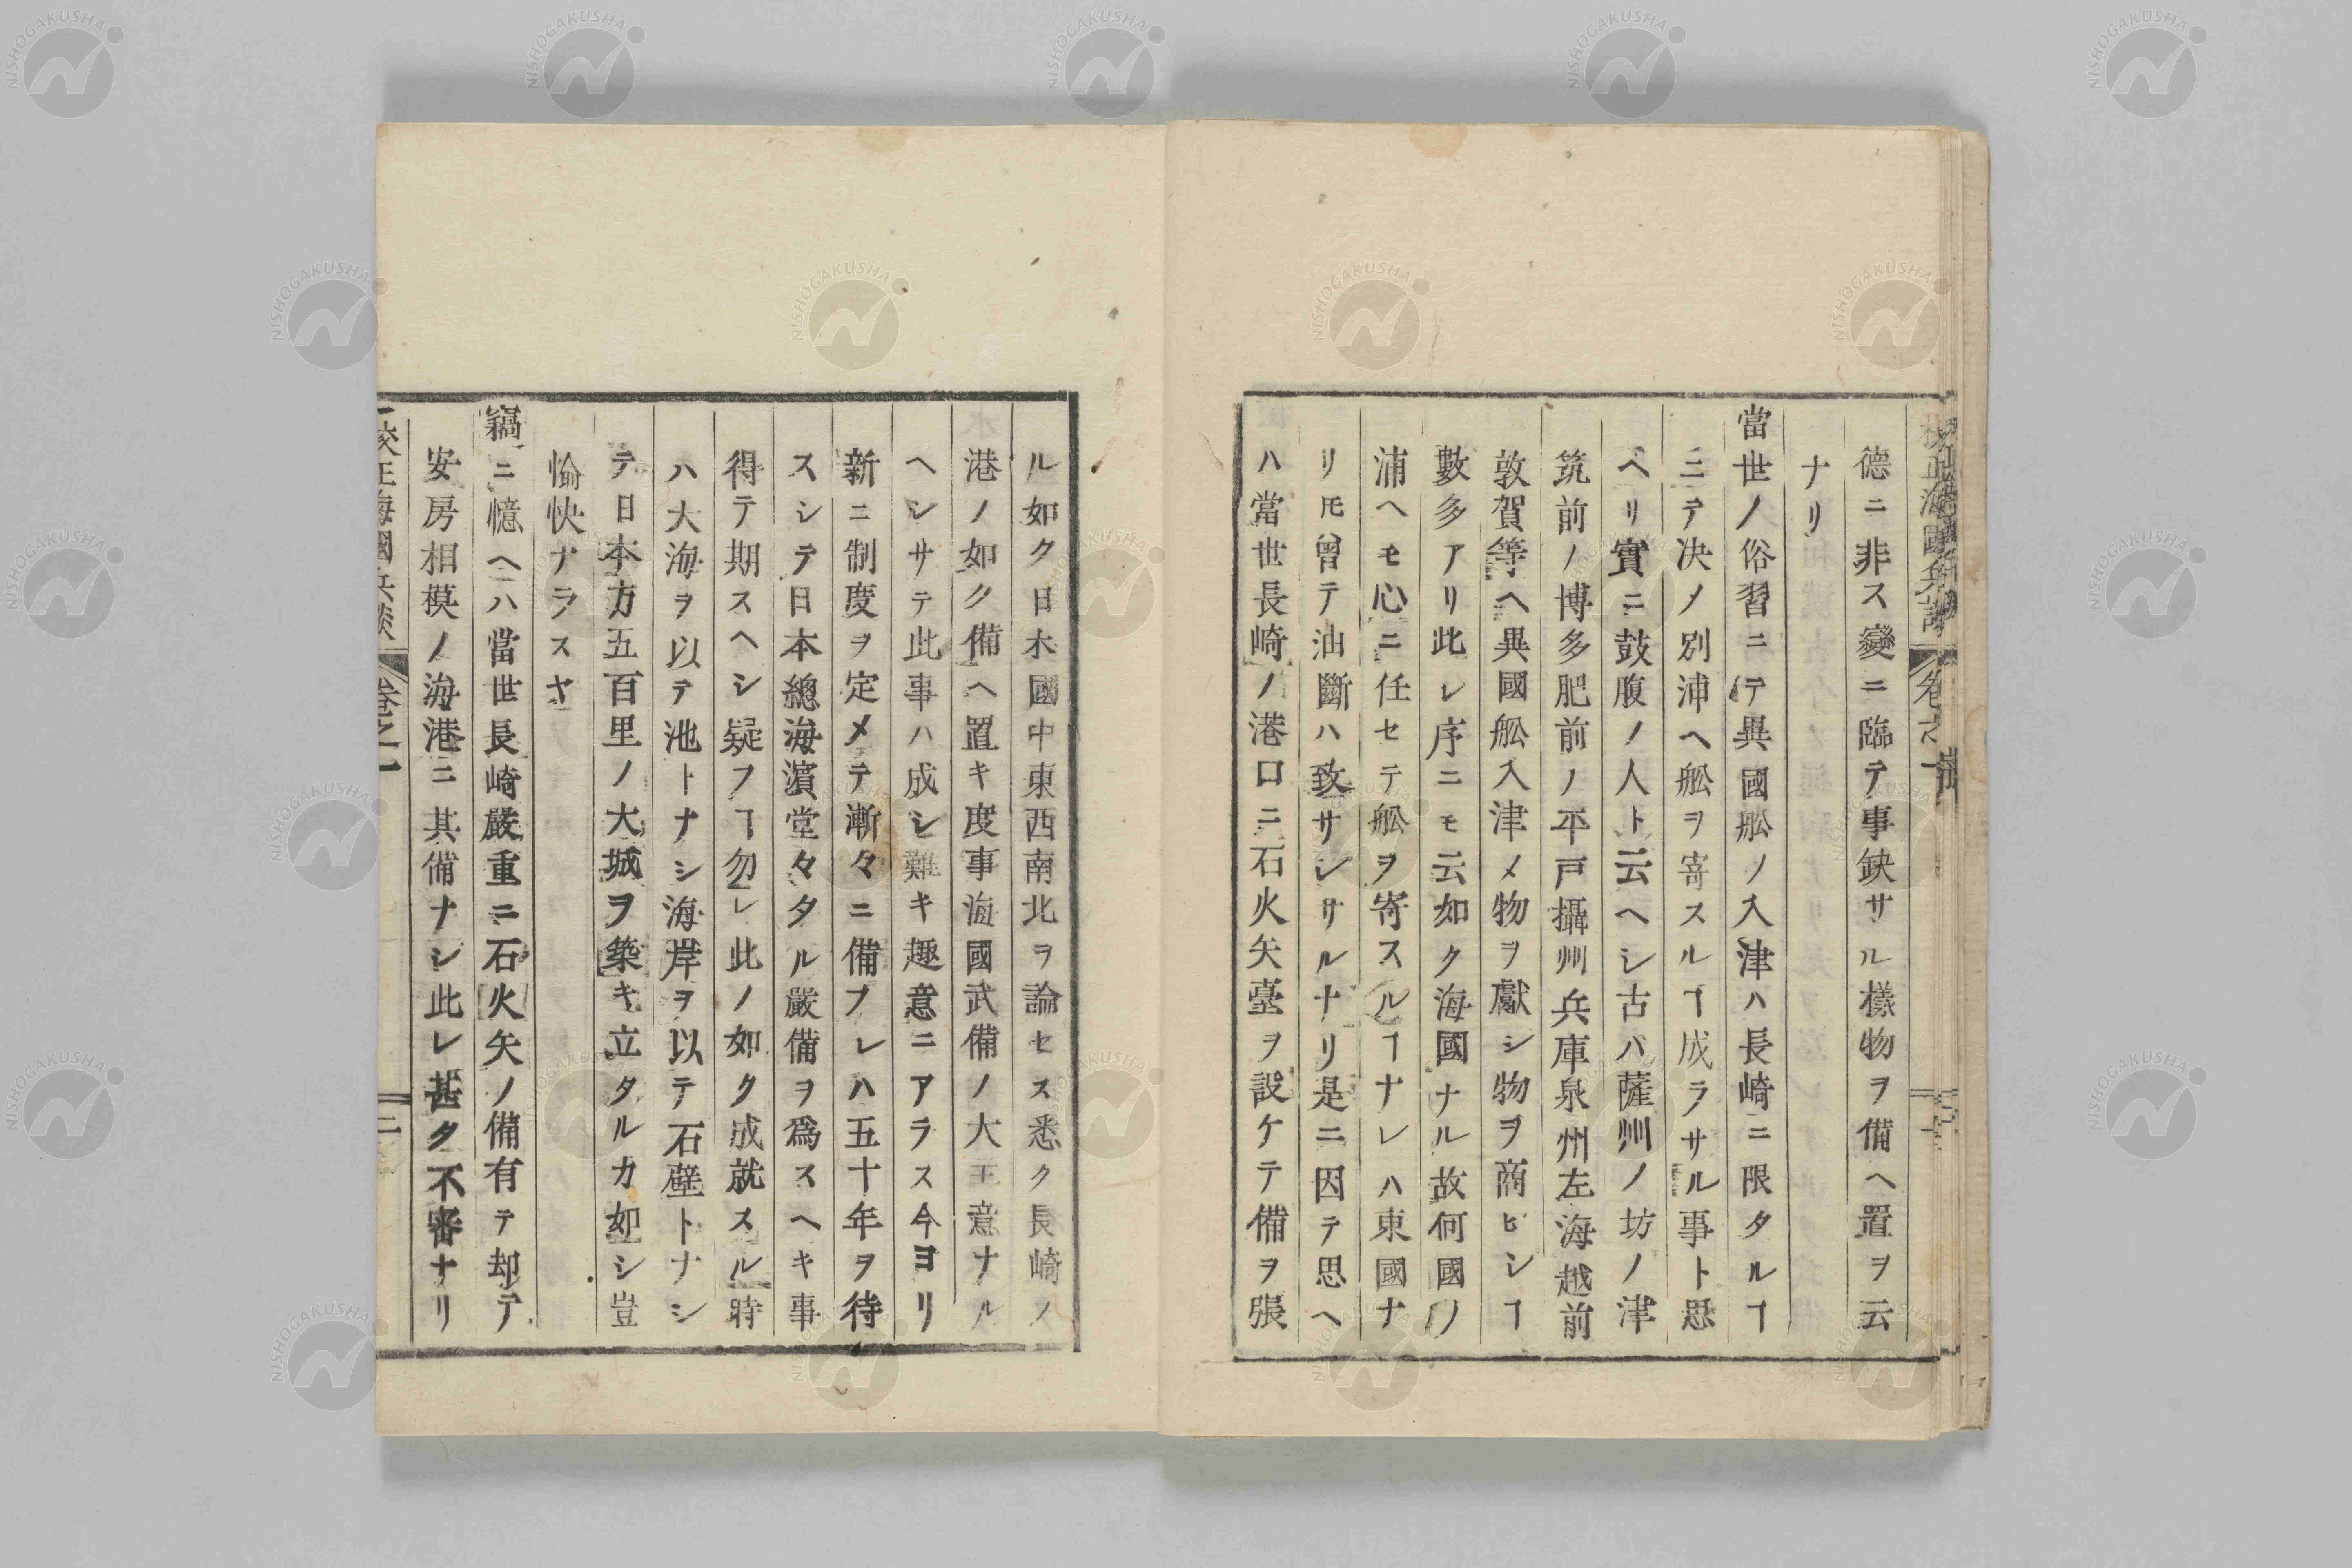 德ニ非ス變ニ臨テ事缺サル樣物ヲ備ヘ置ヲ云
ナリ
當世ノ俗習ニテ異國舩ノ入津ハ長崎ニ限タルヿ
ニテ决ノ別浦ヘ舩ヲ寄スルヿ成ラサル事ト思
ヘリ實ニ鼓腹ノ人ト云ヘシ古ハ薩州ノ坊ノ津
筑前ノ博多肥前ノ平戸攝州兵庫泉州左海越前
敦賀等ヘ異國舩入津メ物ヲ獻シ物ヲ商ヒシヿ
數多アリ此レ序ニモ云如ク海國ナル故何國ノ
浦ヘモ心ニ任セテ舩ヲ寄スルヿナレハ東國ナ
リ𪜈曾テ油斷ハ致サレサルナリ是ニ因テ思ヘ
ハ當世長崎ノ港口ニ石火矢臺ヲ設ケテ備ヲ張
ル如ク日本國中東西南北ヲ論セス悉ク長崎ノ
港ノ如ク備ヘ置キ度事海國武備ノ大主意ナル
ヘシサテ此事ハ成シ難キ趣意ニアラス今ヨリ
新ニ制度ヲ定メテ漸々ニ備フレハ五十年ヲ待
スシテ日本總海濵堂々タル嚴備ヲ爲スヘキ事
得テ期スヘシ疑フヿ勿レ此ノ如ク成就スル時
ハ大海ヲ以テ池トナシ海岸ヲ以テ石壁トナシ
テ日本方五百里ノ大城ヲ築キ立タルカ如シ豈
愉快ナラスヤ
竊ニ憶ヘハ當世長崎嚴重ニ石火矢ノ備有テ却テ
安房相摸ノ海港ニ其備ナシ此レ甚タ不審ナリ
校正海國兵談 卷之一 二